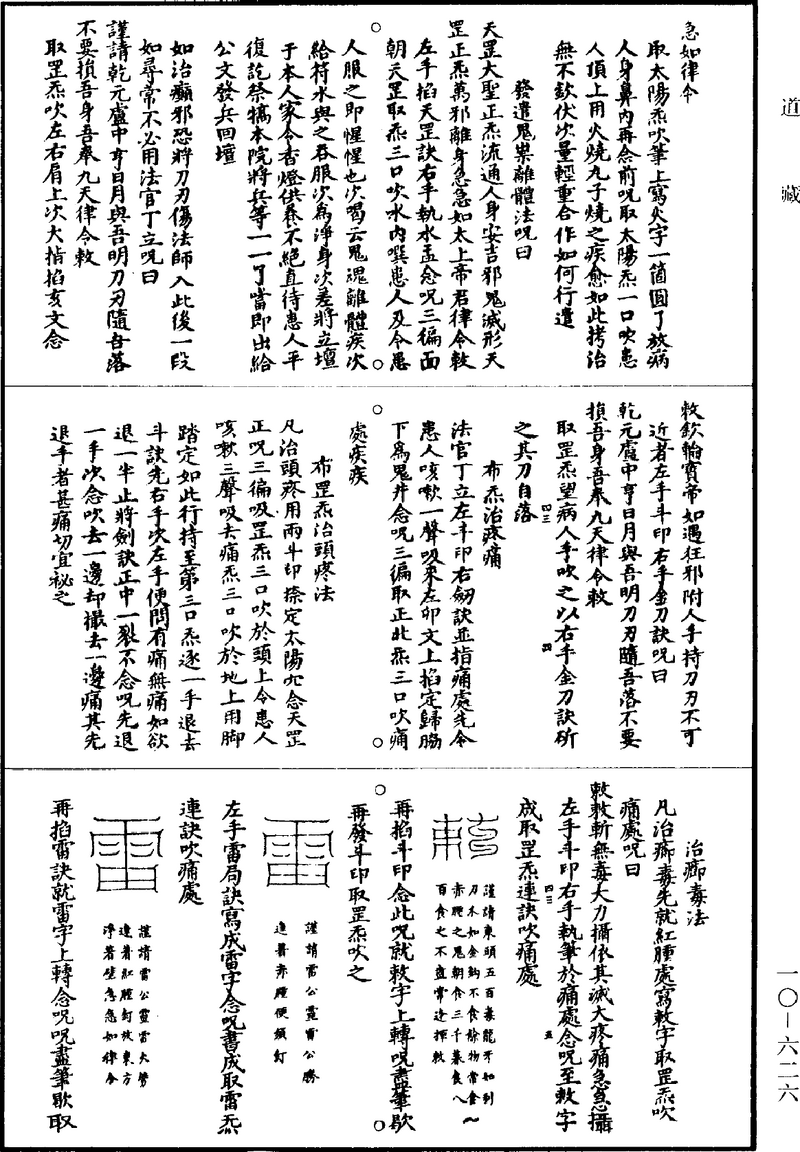 道藏
一〇—六二六
急如律令
取太陽炁吹筆上寫火字一箇圓了放病
人身鼻內再念前呪取太陽炁一口吹患
人頂上用火燒九子燒之疾愈如此拷治
無不欽伏次量輕重合作如何行遣
發遣鬼祟離體法呪曰
天罡大聖正炁流通人身安吉邪鬼滅形天
罡正炁萬邪離身急急如太上帝君律令敕
左手掐天罡訣右手執水盂念呪三徧面
朝天罡取炁三口吹水內噀患人及令患
人服之即惺惺也次喝云鬼魂離體疾次
給符水與之吞服次為淨身次差將立壇
于本人家令香燈供養不絕直待患人平
復訖祭犒本院將兵等一一了當即出給
公文發兵回壇
如治癲邪恐將刀刃傷法師入此後一段
如尋常不必用法官丁立呪曰
謹請乾元盧中亨日月與吾明刀刃隨吾落
不要損吾身吾奉九天律令敕
取罡炁吹左右肩上次大指掐亥文念
敕欽輪寶帝如遇狂邪附人手持刀刃不可
近者左手斗印右手金刀訣呪曰
乾元盧中亨日月與吾明刀刃隨吾落不要
損吾身吾奉九天律令敕
取罡炁望病人手吹之以右手金刀訣斫
之其刀自落
布炁治疼痛
法官丁立左手斗印右劒訣並指痛處先令
患人咳嗽一聲吸來左卯文上掐定歸膓
下為鬼井念呪三徧取正北炁三口吹痛
處疾疾
布罡炁治頭疼法
凡治頭疼用兩斗印捺定太陽穴念天罡
正呪三徧吸罡炁三口吹於頭上令患人
咳嗽三聲吸去痛炁三口吹於地上用脚
踏定如此行持至第三口炁逐一手退去
斗訣先右手次左手便問有痛無痛如欲
退一半止將劍訣正中一裂不念呪先退
一手次念吹去一邊却撤去一邊痛其先
退手者甚痛切宜祕之
治瘤毒法
凡治瘤毒先就紅腫處寫敕字取罡炁吹
痛處呪曰
敕敕斬無毒大力攝依其滅大疼痛急急攝
左手斗印右手執筆於痛處念呪至敕字
成取罡炁連訣吹痛處
謹請東頭五百蒼龍牙如到
刀木如金鈎不食餘物常食
赤腫之鬼朝食三千暮食八
百食之不盡常逢揮敕
再掐斗印念此呪就敕字上轉呪盡筆歇
再發斗印取罡炁吹之
謹請雷公霹靂公勝
進著赤腫便須釘
左手雷局訣寫成雷字念呪書成取雷炁
連訣吹痛處
謹請雷公霹靂大聲
連著紅腫釘放東方
淨著壁急急如律令
再掐雷訣就雷字上轉念呪呪盡筆歇取